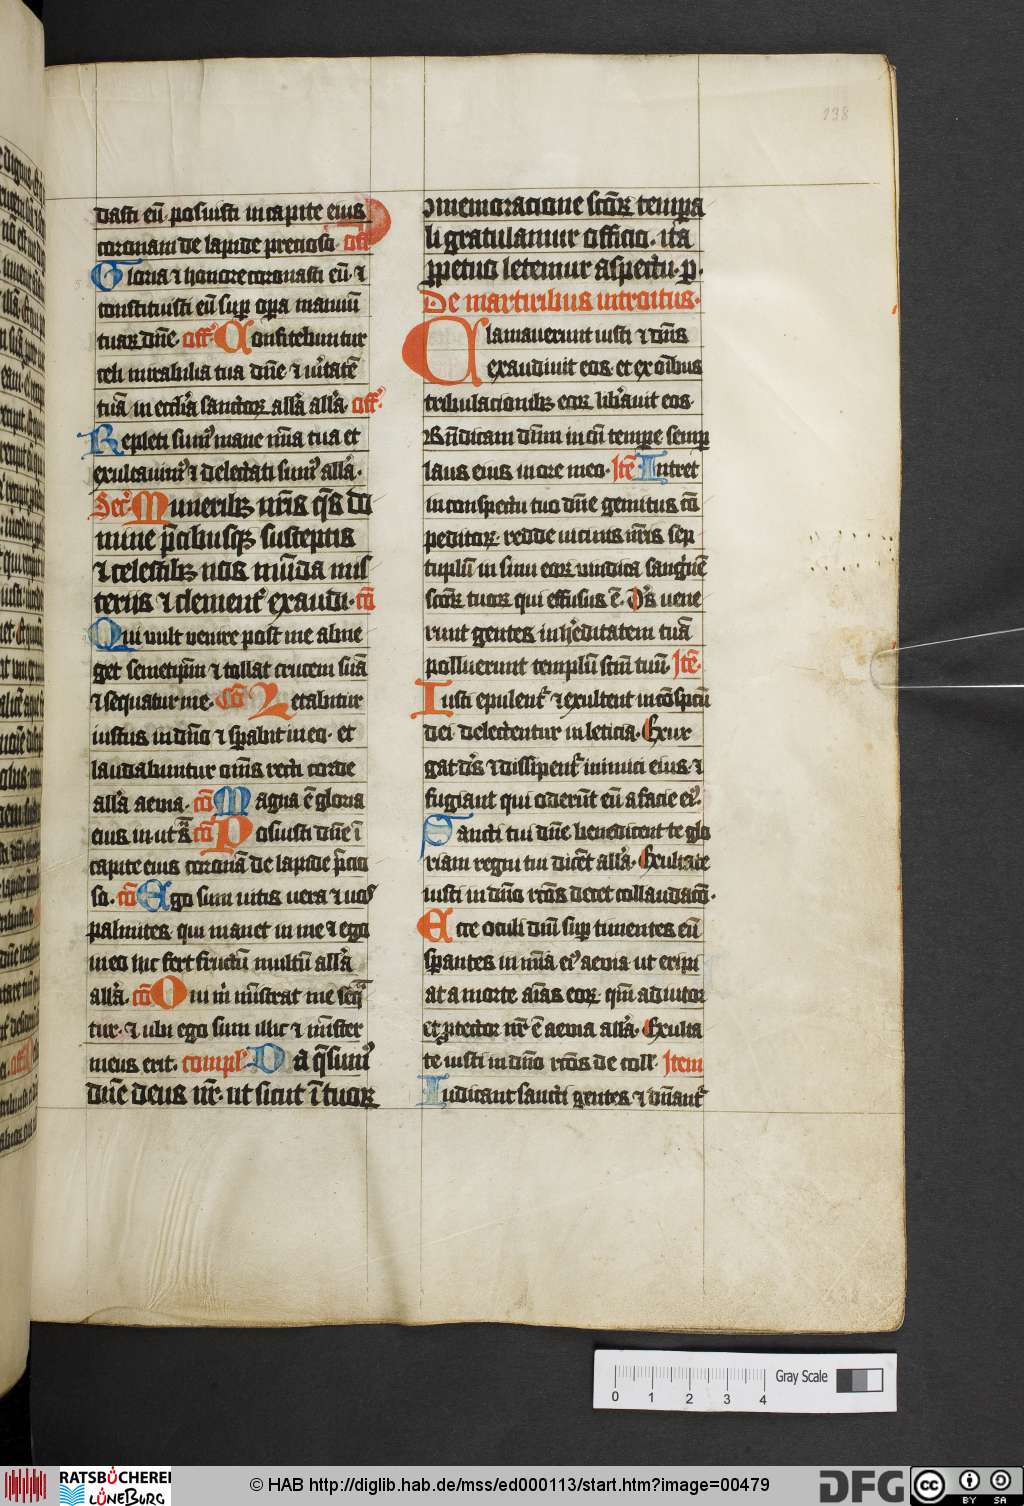 238
dasti eū posuisti in capite eius
coronam de lapide precioso. off̄
Gloria ⁊ honore coronasti eū ⁊
constituisti eū sup opa manuū
tuaꝝ dn̄e. off̄ Confitebuntur
celi mirabilia tua dn̄e ⁊ u̓itatē
tuā in eccl̓ia sanctoꝝ all̓a all̓a. off̄
Repleti sum⁹ mane mi̓a tua et
exultauim⁹ ⁊ delectati sum⁹ all̓a.
Secr̓ Muneribꝫ nr̄is qs̄ do
mine p̄cibusqꝫ susceptis
⁊ celestibꝫ nos mūda mis
terijs ⁊ clement̓ exaudi. cō
Qui uult uenire post me abne
get semetip̄m ⁊ tollat crucem suā
⁊ sequatur me. Cō Letabitur
iustus in dn̄o ⁊ sp̄abit in eo. et
laudabuntur om̄s recti corde
all̓a aeuia. cō Magna ē gloria
eius in ut s̄ cō Posuisti dn̄e ī
capite eius coronā de lapide p̄cio
so. cō Ego sum uitis uera ⁊ uos
palmites qui manet in me ⁊ ego
in eo hic fert fructū multū all̓a
all̓a. cō Qui m̓ mīstrat me seq̄
tur. ⁊ ubi ego sum illic ⁊ mīster
meus erit. compl̓ Da q̄sum⁹
dn̄e deus nr̄. ut sicut ī tuoꝝ
ꝯmemoracione sc̄oꝝ tempa
li gratulamur officio. ita
ꝑpetuo letemur aspectu. p.
De martiribus introitus.
Clamauerunt iusti ⁊ dn̄s
exaudiuit eos. et ex oībus
tribulacionibꝫ eoꝝ lib̓auit eos.
Bn̄dicam dn̄m in oī tempe semp
laus eius in ore meo. Itē Intret
in conspectu tuo dn̄e gemitus cō
peditoꝝ. redde uicinis nr̄is sep
tuplū in sinu eoꝝ uindica sanguīē
sc̄oꝝ tuoꝝ qui effusus ē. Ds̄ uene
runt gentes in h̓editatem tuā
polluerunt templū sc̄m tuū. Itē.
Iusti epulent̓ ⁊ exultent in cōspctū
dei delectentur in leticia. Exur
gat ds̄ ⁊ dissipent̓ inimici eius ⁊
fugiant qui oderūt eū a facie ei⁹.
Sancti tui dn̄e benedicent te glo
riam regni tui dicēt all̓a. Exultate
iusti in dn̄o rc̄os decet collaudacō.
Ecce oculi dn̄i sup timentes eū
sp̄antes in mi̓a ei⁹ aeuia ut eripi
at a morte aīas eoꝝ. qm̄ adiutor
et ꝓtector nr̄ ē aeuia all̓a. Exulta
te iusti in dn̄o rc̄os de coll̓. Item
Iudicant sancti gentes ⁊ dn̄ant̓
0 1 2 3 4 Gray Scale
RATSBÜCHEREI LÜNEBURG
© HAB http://diglib.hab.de/mss/ed000113/start.htm?image=00479
DFG
cc BY SA